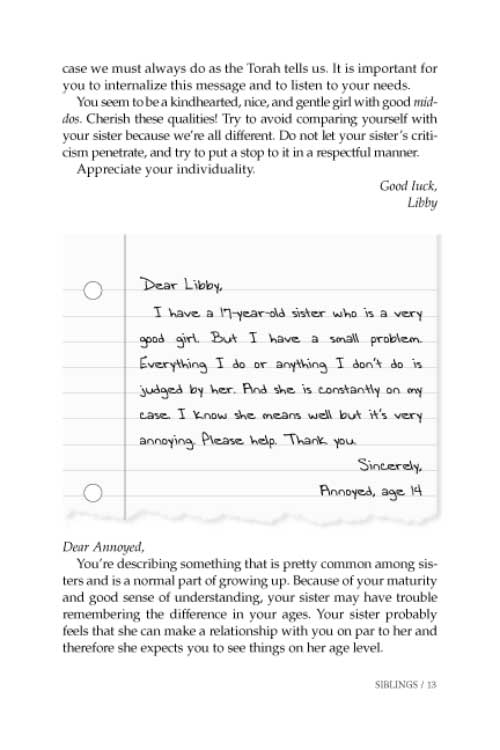 case we must always do as the Torah tells us. It is important for
you to internalize this message and to listen to your needs.
You seem to be a kindhearted, nice, and gentle girl with good mid-
dos. Cherish these qualities! Try to avoid comparing yourself with
your sister because we're all different. Do not let your sister's criti-
cism penetrate, and try to put a stop to it in a respectful manner.
Appreciate your individuality.
Good luck,
Libby
Dear Libby,
I have a 17-year-old sister who is a very
good girl. But I have a small problem.
Everything I do or anything I don't do is
judged by her. And she is constantly on my
case. I know she means well but it's very
annoying. Please help. Thank you.
Sincerely,
Annoyed, age 14
Dear Annoyed,
You're describing something that is pretty common among sis-
ters and is a normal part of growing up. Because of your maturity
and good sense of understanding, your sister may have trouble
remembering the difference in your ages. Your sister probably
feels that she can make a relationship with you on par to her and
therefore she expects you to see things on her age level.
SIBLINGS / 13